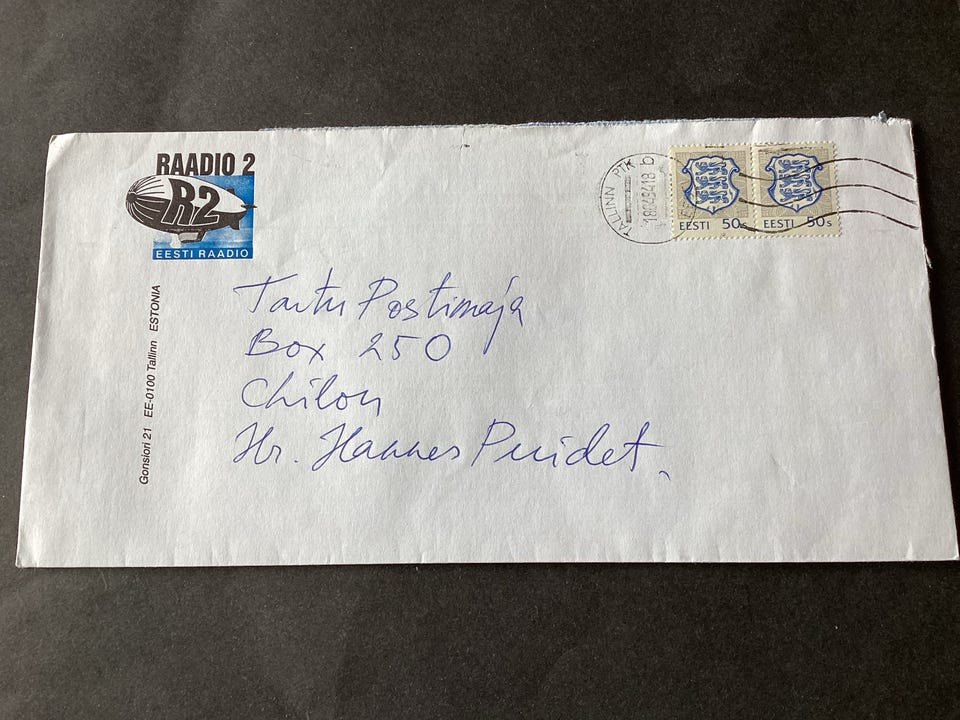 RAADIO 2
R2
EESTI RAADIO
Gonsiori 21 EE-0100 Tallinn ESTONIA
TALLINN PTK
18049418 b
EESTI 50s
EESTI 50s
Tartu Postimaja
Box 250
Chilon
Hr. Hannes Puidet.